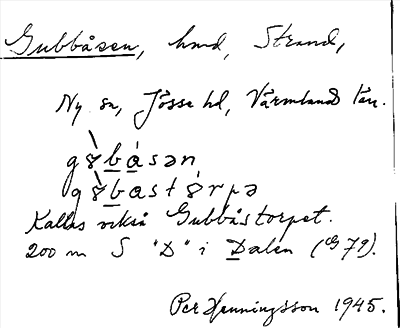 Gubbåsen, hmd, Strand,
Ny sn, Jösse hd, Värmlands län.
gɞ̀básən
gɞ̀bastɞ́rpə
Kallas också Gubbåstorpet.
200 m S "D" i Dalen (G 79).
Per Henningsson 1945.